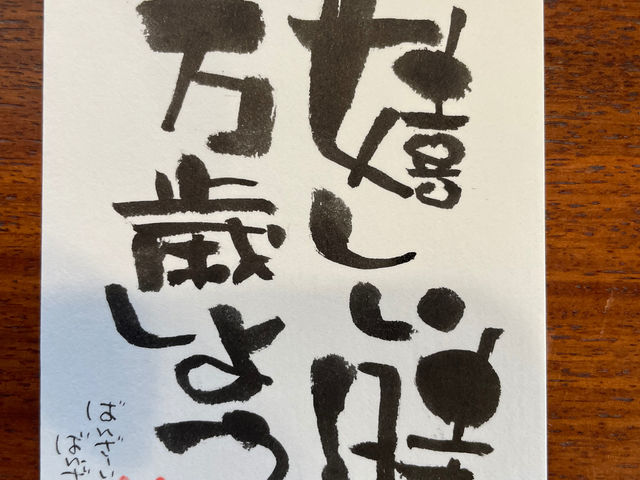 嬉しい時
万歳しよう
ばんざーい
ばんざ